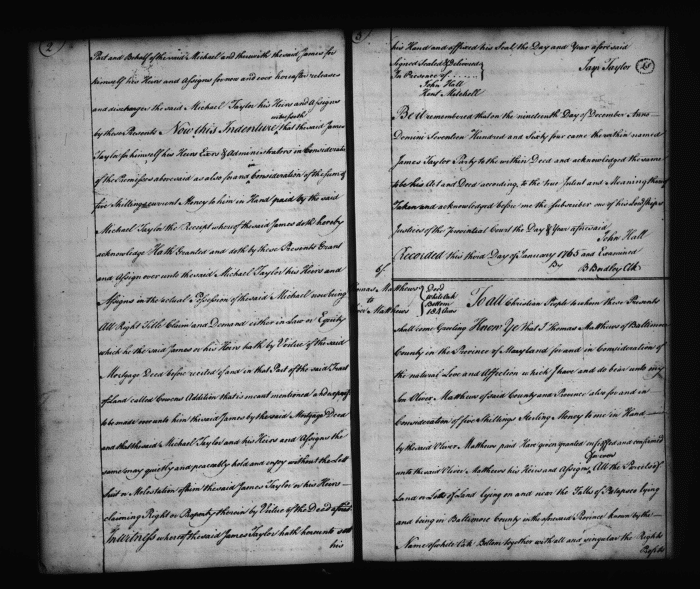 2
Part and Behalf of the said Michael and therewith the said James for
himself his Heirs and Assigns for now and ever hereafter releases
and discharges the said Michael Taylor his Heirs and Assigns
by these Presents Now this Indenture witnesseth that the said James
Taylor for himself his Heirs Exrs & Administrators in Consideration
of the Premisses above said as also for and in Consideration of the sum of
five Shillings current Money to him in Hand paid by the said
Michael Taylor the Receipt whereof the said James doth hereby
acknowledge Hath Granted and doth by these Presents Grant
and Assign over unto the said Michael Taylor his Heirs and
Assigns in the actual Possession of the said Michael now being
All Right Title Claim and Demand either in Law or Equity
which he the said James or his Heirs hath by Virtue of the said
Mortgage Deed before recited of and in that Part of the said Tract
of Land called Cowens Addition that is meant mentioned and
to made over unto him the said James by the said Mortgage Deed
and that the said Michael Taylor and his Heirs and Assigns the
same may quietly and peaceably hold and enjoy without the Lett
hut or Molestation of him the said James Taylor or his Heirs
claiming Right or Property therein by Virtue of the Deed aforesd
In Witness whereof the said James Taylor hath hereunto set
his
3
his Hand and affixed his Seal the Day and Year aforesaid
Signed Sealed & Delivered
In Presence of
John Hall
Kent Mitchell
Jas Taylor
Be it remembered that on the nineteenth Day of December Anno
Domini Seventeen Hundred and Sixty four came the within named
James Taylor Party to the within Deed and acknowledged the same
to be his Act and Deed according to the true Intent and Meaning thereof
Taken and acknowledged before me the Subscriber one of his Lordships
Justices of the Provincial Court the Day & Year aforesaid
John Hall
Recorded this third Day of January 1765 and Examined
By B Bradley Clk
Thomas Matthews
to
Oliver Matthews
Deed
White Oak
Bottom
184 Acres
To all Christian People to whom these Presents
shall come Greeting Know Ye that I Thomas Matthews of Baltimore
County in the Province of Maryland for and in Consideration of
the natural Love and Affection which I have and do bear unto my
Son Oliver Matthews of said County and Province also for and in
Consideration of five Shillings Sterling Money to me in Hand
by the said Oliver Matthews paid Have given granted enfeoffed and confirmed
unto the said Oliver Matthews his Heirs and Assigns for ever All the Parcels of
Land or Lotts of Land lying on and near the Falls of Patapsco lying
and being in Baltimore County with aforesaid Province known by the
Name of white Oak Bottom together with all and singular the Rights
Profits